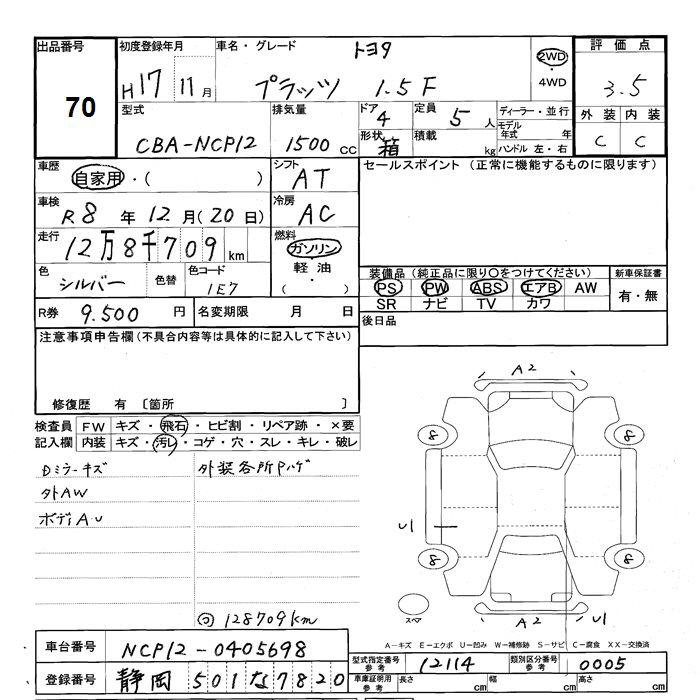 出品番号
70
初度登録年月
H17年11月
車名・グレード
トヨタ
プラッツ 1.5F
2WD
・
4WD
評価点
3.5
外装 内装
C C
型式
CBA-NCP12
排気量
1500 CC
ドア
4
形状
箱
定員
5 人
積載
kg
ディーラー・並行
モデル年式 年
ハンドル 左・右
車歴
自家用・( )
シフト
AT
セールスポイント (正常に機能するものに限ります)
車検
R8年12月(20日)
冷房
AC
走行
12万8千709km
燃料
ガソリン
・
軽油
・
( )
色
シルバー
色替
色コード
1E7
装備品 (純正品に限り○をつけてください)
PS PW ABS エアB AW
SR ナビ TV カワ
新車保証書
有・無
R券 9.500 円
名変期限 月 日
後日品
注意事項申告欄(不具合内容等は具体的に記入して下さい)
修復歴 有 〔箇所 〕
検査員記入欄
FW キズ・飛石・ヒビ割・リペア跡・×要
内装 キズ・汚レ・コゲ・穴・スレ・キレ・破レ
Dミラーキズ
外装各所Pハゲ
外AW
ボディAU
128709km
A2
8
8
U1
8
8
スペア
A2
U1
A-キズ E-エクボ U-凹み W-補修跡 S-サビ C-腐食 XX-交換済
車台番号 NCP12-0405698
登録番号 静岡 501な7820
型式指定番号 参考 12114
類別区分番号 参考 0005
車庫証明用 参考 長さ cm 幅 cm 高さ cm